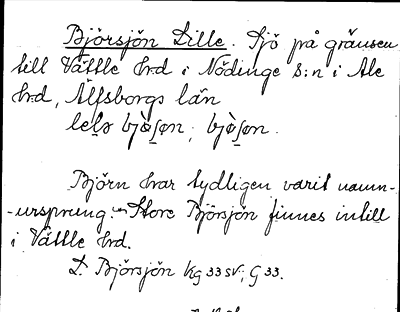 Björsjön Lille. Sjö på gränsen
till Vättle hrd i Nödinge s:n i Ale
hrd, Älfsborgs län
bjö̀ʃøn; bjö̀ʃøn.
Björn har tydligen varit namn-
-ursprung. - Store Björsjön finnes intill
i Vättle hrd.
L. Björsjön Kg 33 SV; G 33.